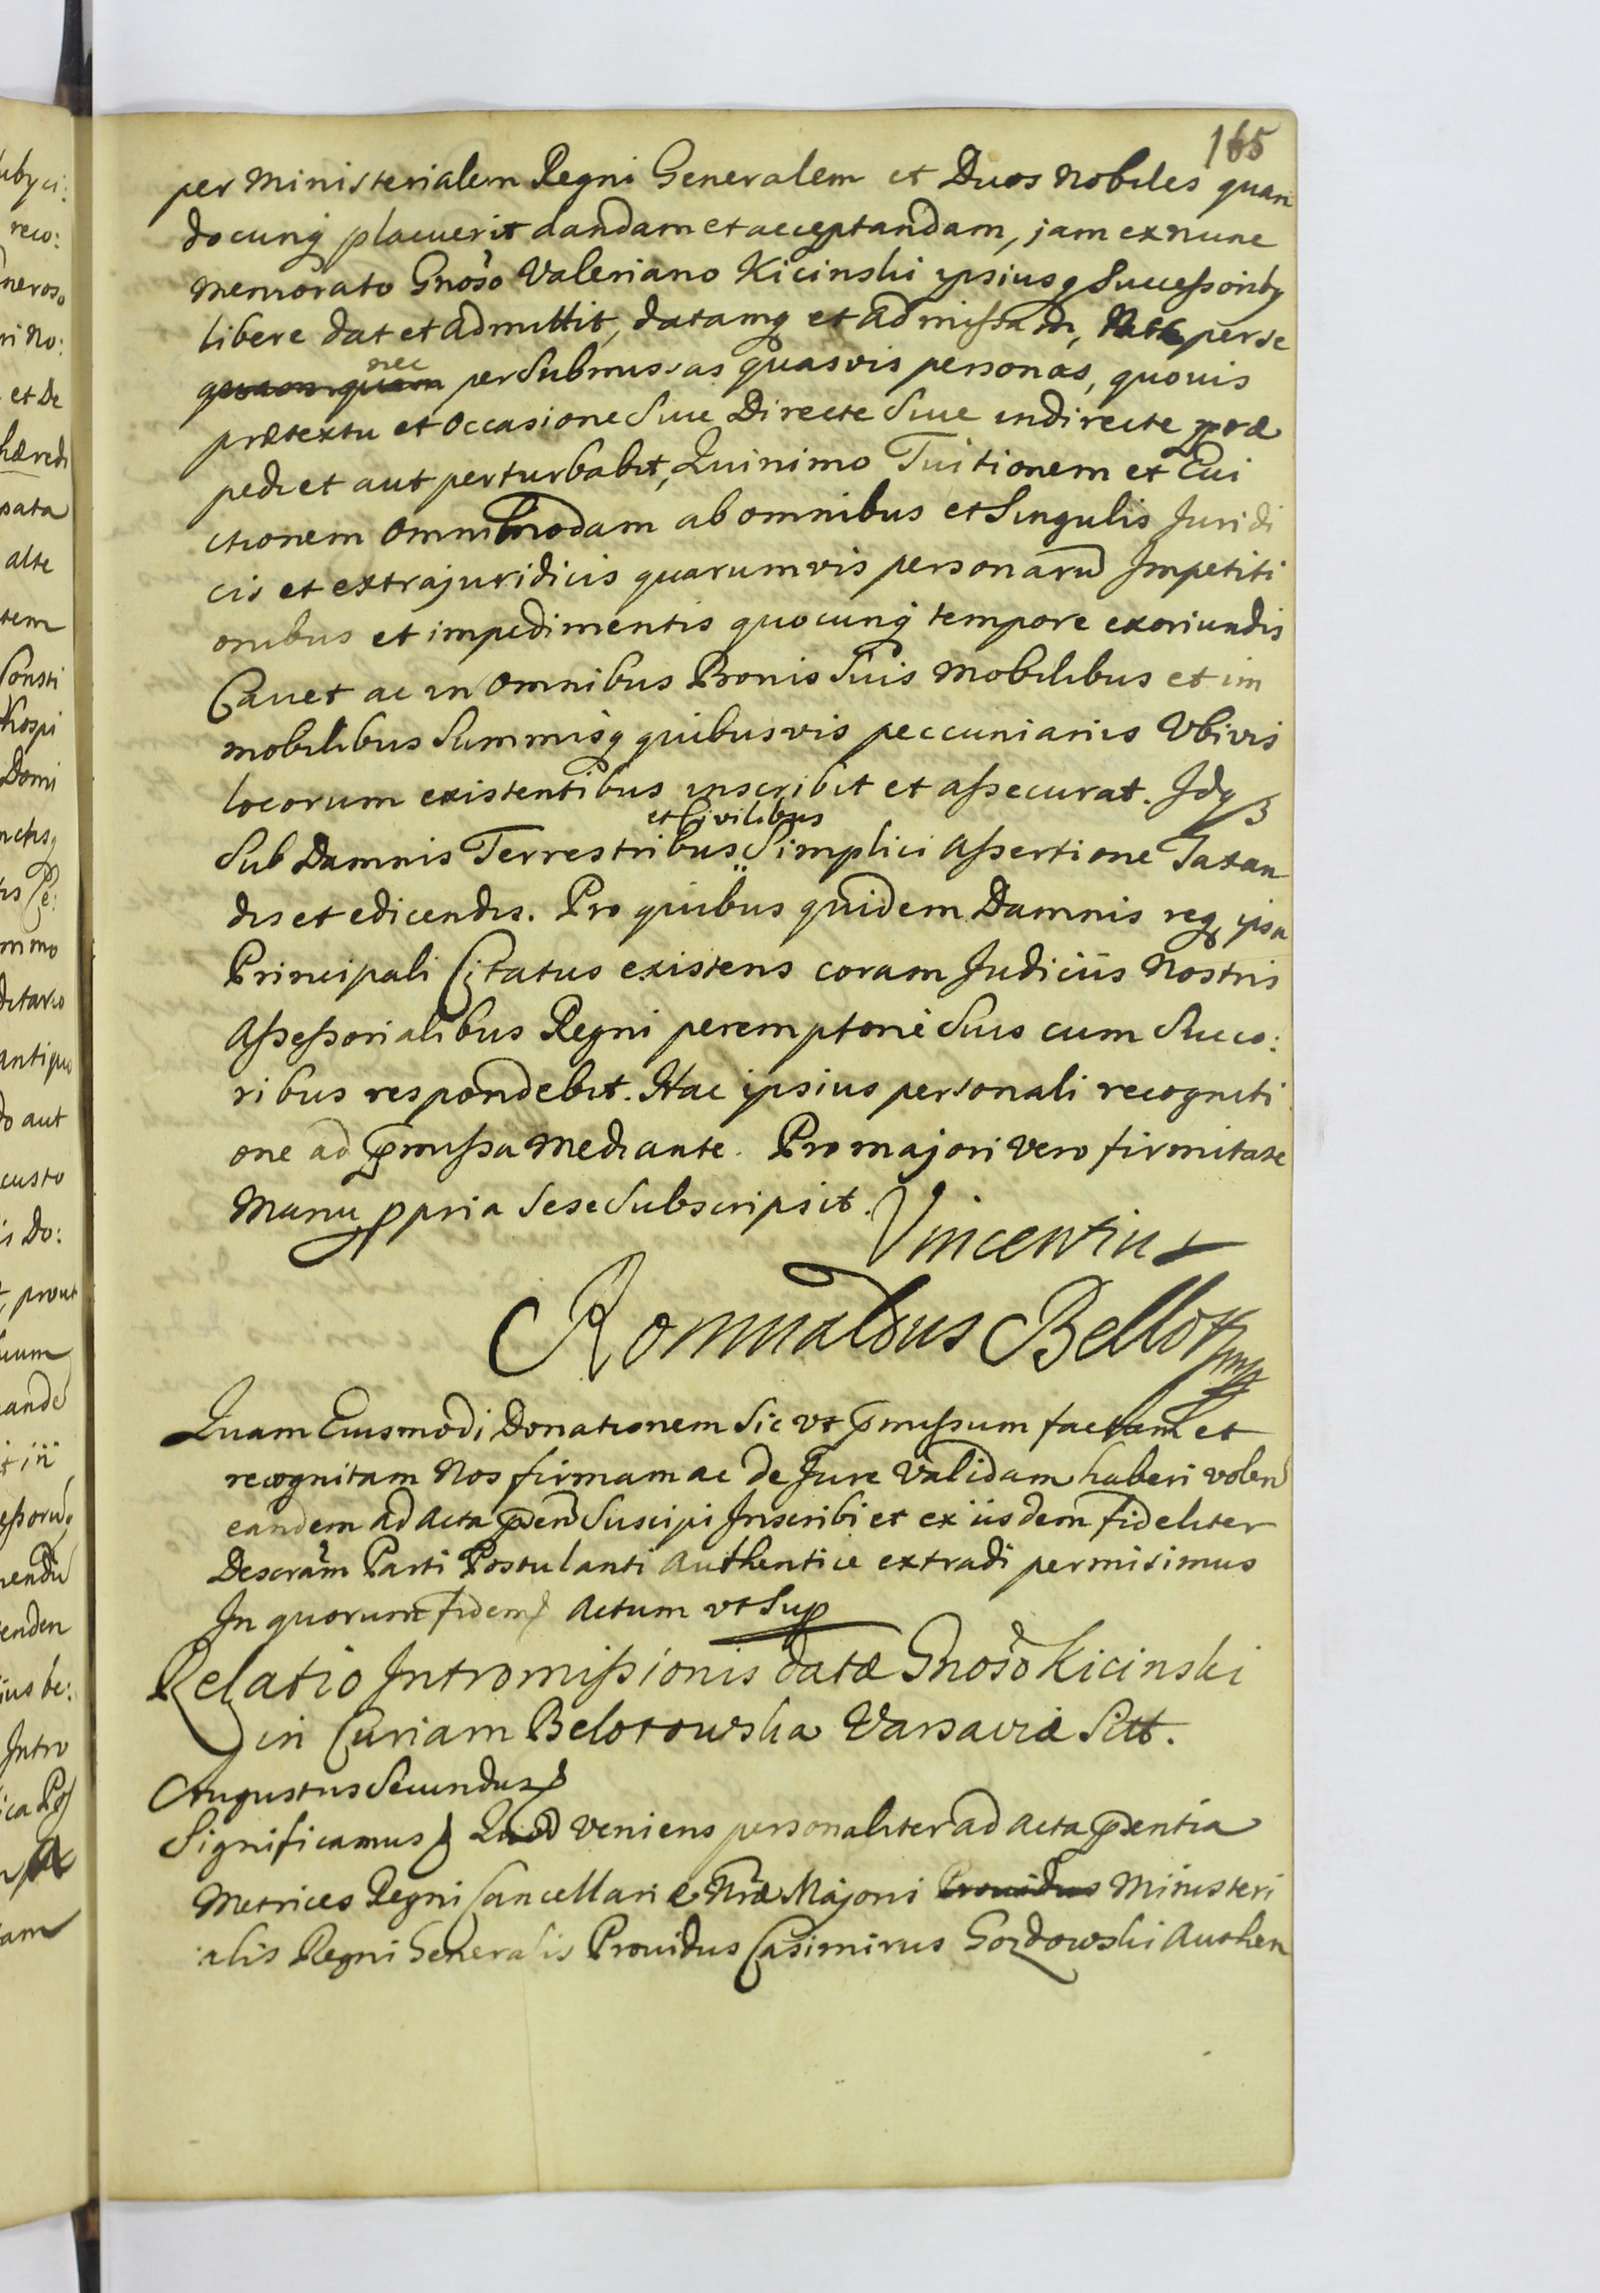 165
per Ministerialem Regni Generalem et Duos Nobiles quan
docunq placuerit dandam et acceptandam, jam ex nunc
memorato Gnoso Valeriano Kicinski ipsiusq Successoribq
libere dat et admittit, datamq et admissam, Nec per se
nec
per submissas quasvis personas, quovis
prætextu et occasione Siue Directe Siue indirecte præ
pediet aut perturbabit, Quinimo Tuitionem et Evi
ctionem omnimodam ab omnibus et Singulis Juridi
cis et extrajuridicis quarumvis personarū Impetiti
onibus et impedimentis quocunq tempore exoriundis
Cavet ac in omnibus Bonis Suis Mobilibus et im
mobilibus Summisq quibusvis peccuniariis Vbivis
locorum existentibus inscribit et assecurat. Idq
et Civilibus
Sub Damnis Terrestribus Simplici Assertione Taxan
dis et edicendis. Pro quibus quidem Damnis req ipsa
Principali Citatus existens coram Judiciis Nostris
Assessorialibus Regni peremptorie Suis cum Succo:
ribus respondebit. Hac ipsius personali recogniti
one ad pmissa mediante. Pro majori vero firmitate
Manu ppria Sese Subscripsit. Vincentius
Romualdus Bellot
Quam Eiusmodi Donationem Sic vt pmissum factam et
recognitam Nos firmam ac de Jure Validam haberi volen
eandem ad Acta pden Suscipi Inscribi et ex iisdem fideliter
Descram Parti Postulanti Authentice extradi permisimus
In quorum fidem Actum vt Sup
Relatio Intromissionis datæ Gnoso Kicinski
in Curiam Belotowska Varsaviæ Sitt.
Augustus Secundus
Significamus Quod veniens personaliter ad acta pxentia
Metrices Regni Cancellariæ Nræ Majoris Providus Ministeri
alis Regni Generalis Providus Casimirus Gozdowski Authen